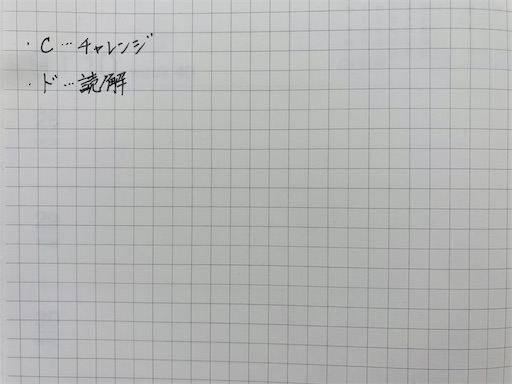 ・C…チャレンジ
・ド…読解